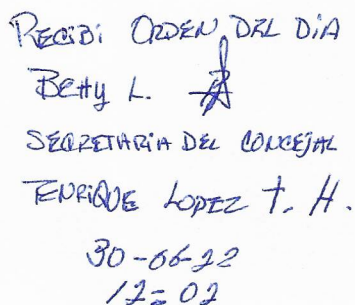 RECIBI ORDEN DEL DIA
BEtty L.
SECRETARIA DEL CONCEJAL
ENRIQUE LOPEZ T. H.
30-06-22
12=02